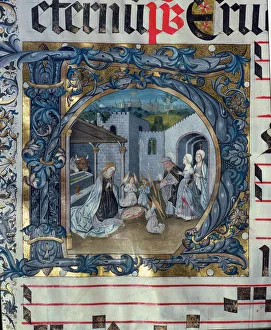 eternũ. ps Eru